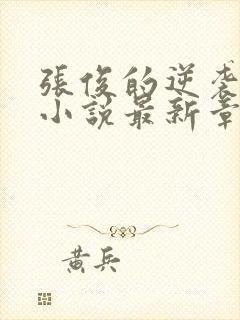 張俊的逆袭
小説最新章
黄兵